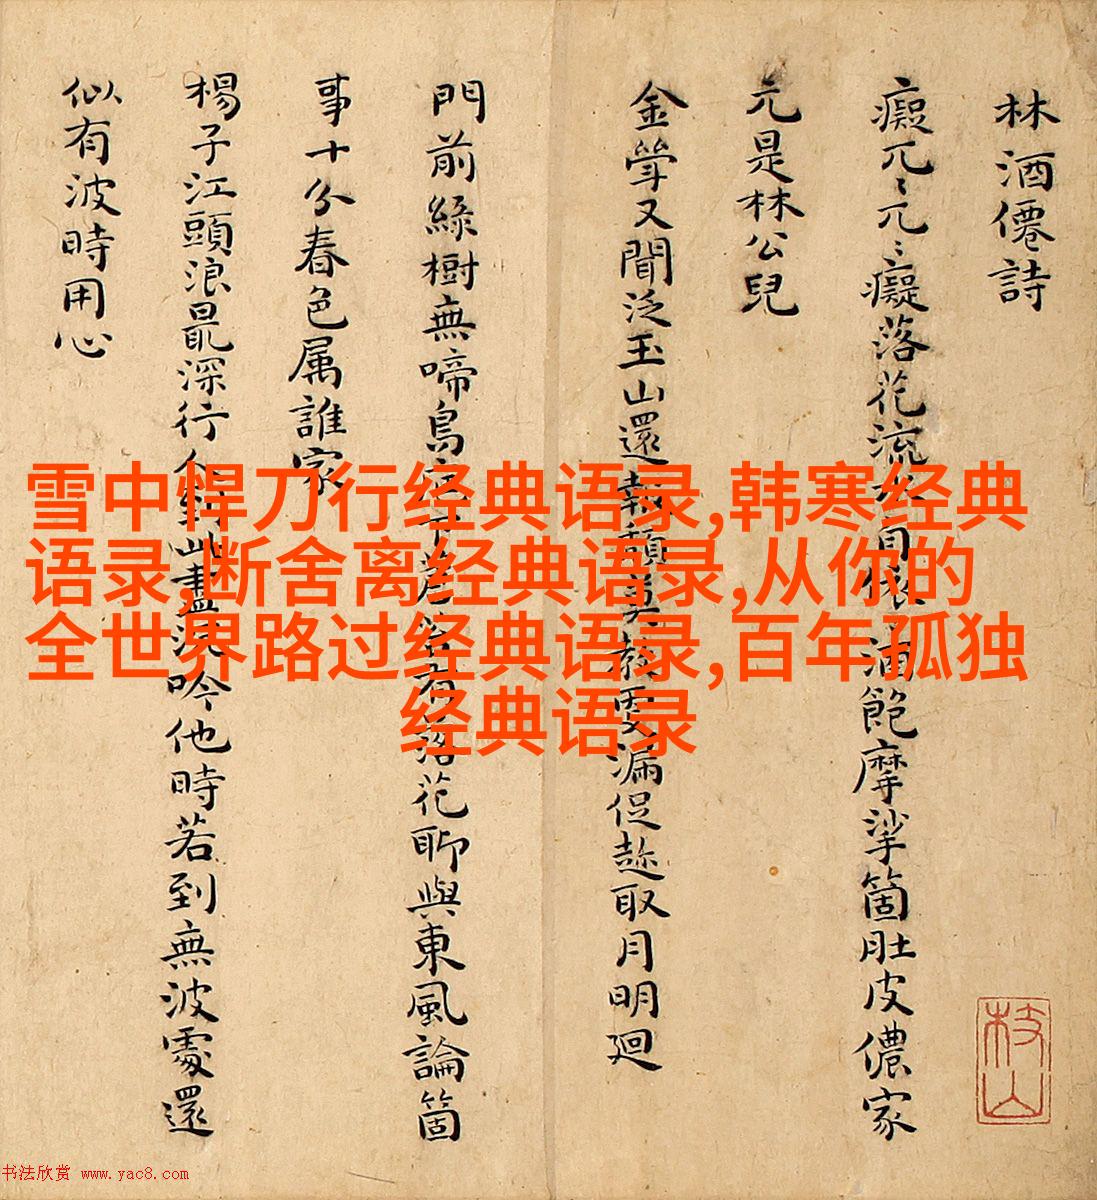 林酒僊詩
癡兀〻兀〻癡落花流 酒飽摩挲箇肚皮儂家
元是林公兒
金斝又聞泛玉山還 頹莫教更漏促趂取月明廻
門前綠樹無啼鳥庭下 有落花聊與東風論箇
事十分春色属誰家
楊子江頭浪最深行人到此盡沉吟他時若到無波處還
似有波時用心
枝山
雪中悍刀行经典语录,韩寒经典
语录,断舍离经典语录,从你的
全世界路过经典语录,百年孤独
经典语录
书法欣赏 www.yac8.com